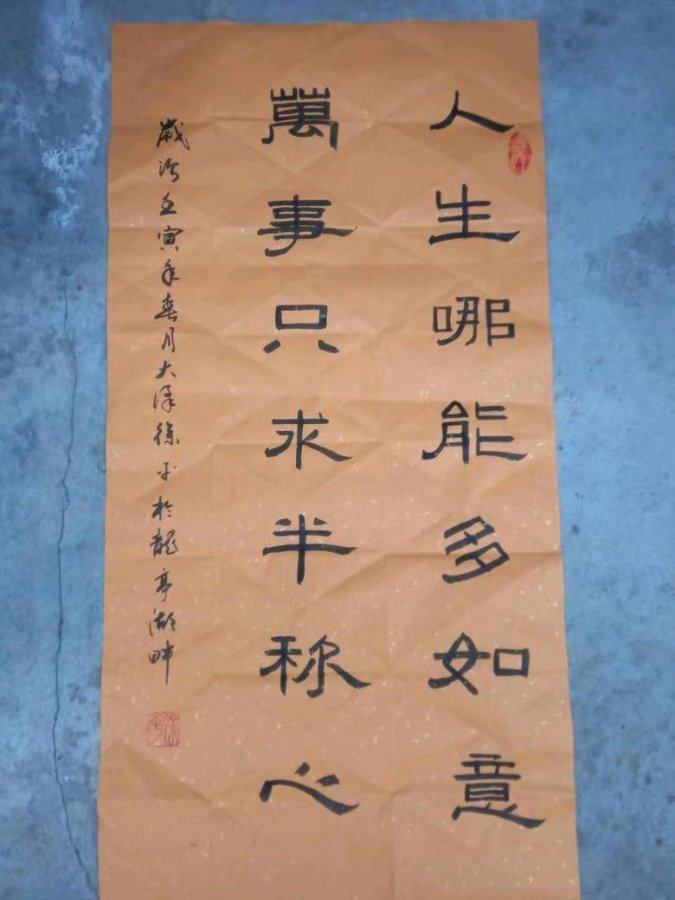 人生哪能多如意
萬事只求半称心
歲次壬寅年春月大澤徐平於龍亭湖畔